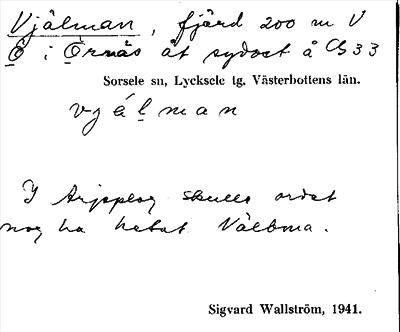 Vjälman, fjärd 200 m V
Ö i Örnäs åt sydost å CG33
Sorsele sn, Lycksele tg, Västerbottens län.
vjálman
I Arjeplog skulle ordet
nog ha hetat Välbma.
Sigvard Wallström, 1941.